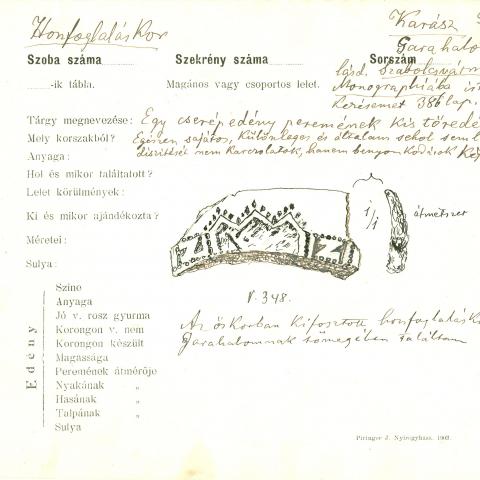 Honfoglalás Kor
Karász
Garahalo
Szoba száma Szekrény száma Sorszám
lásd. Szabolcsvárm
-ik tábla. Magános vagy csoportos lelet. Monographiába
Kerésemet 386 lap.
Tárgy megnevezése: Egy cserép edény peremének kis töredé
Mely korszakból? Egészen sajátos, különleges és általam sehol sem l
Anyaga: díszítését nem karczolatok, hanem benyomkodások
Hol és mikor találtatott?
Lelet körülmények:
Ki és mikor ajándékozta? 1/1 átmetszet
Méretei:
Sulya:
V. 348.
Edény
Szine
Anyaga
Jó v. rosz gyurma
Korongon v. nem
Korongon készült
Magassága
Peremének átmérője
Nyakának „
Hasának „
Talpának „
Sulya
Az őskorban kifosztott honfoglalásk
Garahalomnak tömegében találtam
Piringer J. Nyiregyháza. 1902.